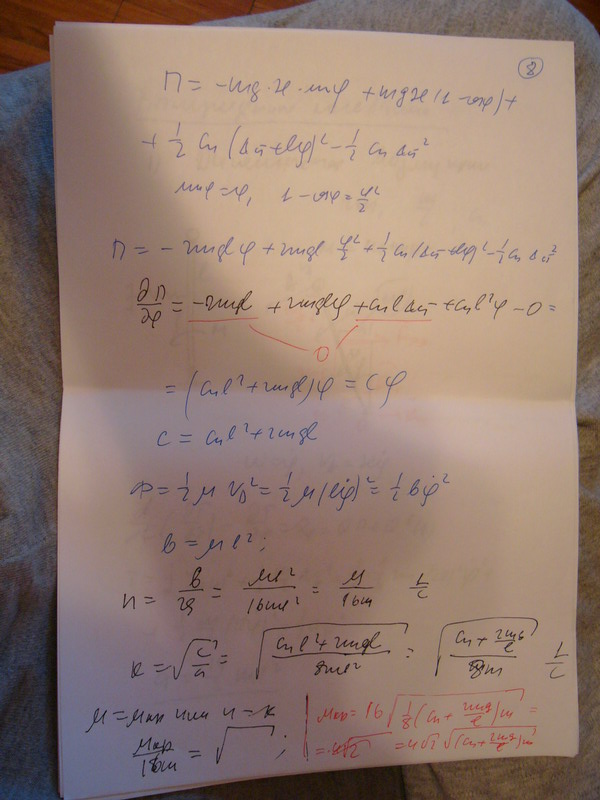 8
П = -mg·2l·sinφ + mg2l(1-cosφ)+
+ 1/2 cп (Δст+lφ)² - 1/2 cп Δст²
sinφ=φ, 1-cosφ=φ²/2
П = -2mglφ + 2mgl φ²/2 + 1/2 cп(Δст+lφ)² - 1/2 cп Δст²
∂П/∂φ = -2mgl + 2mglφ + cпlΔст + cпl²φ - 0 =
0
= (cпl² + 2mgl)φ = cφ
c = cпl² + 2mgl
Ф = 1/2 μ V_D² = 1/2 μ(lφ̇)² = 1/2 bφ̇²
b = μl²;
n = b/2a = μl²/16ml² = μ/16m 1/c
k = √(c/a) = √((cпl²+2mgl)/8ml²) = √((cп + 2mg/l)/8m) 1/c
μ = μкр или n = k
μкр/16m = √ ;
μкр = 16 √(1/8(cп + 2mg/l)m) =
= 4√2 = 4√2 √((cп + 2mg/l)m)